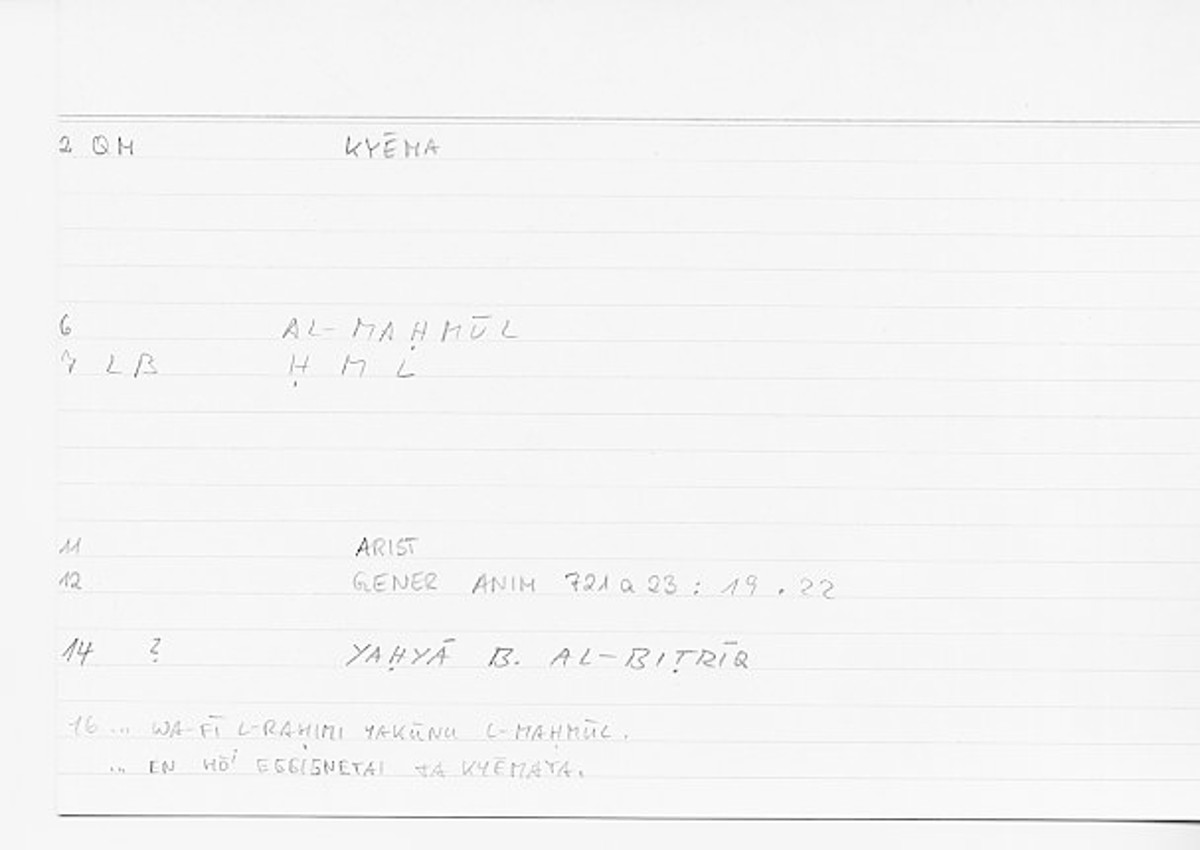 2 QM KYĒMA
6 AL-MAḤMŪL
7 LB Ḥ M L
11 ARIST
12 GENER ANIM 721a23 : 19 . 22
14 ? YAḤYĀ B. AL-BIṬRĪQ
16 ... WA-FĪ L-RAḤIMI YAKŪNU L-MAḤMŪL.
... EN HŌ' EGGIGNETAI TA KYĒMATA.